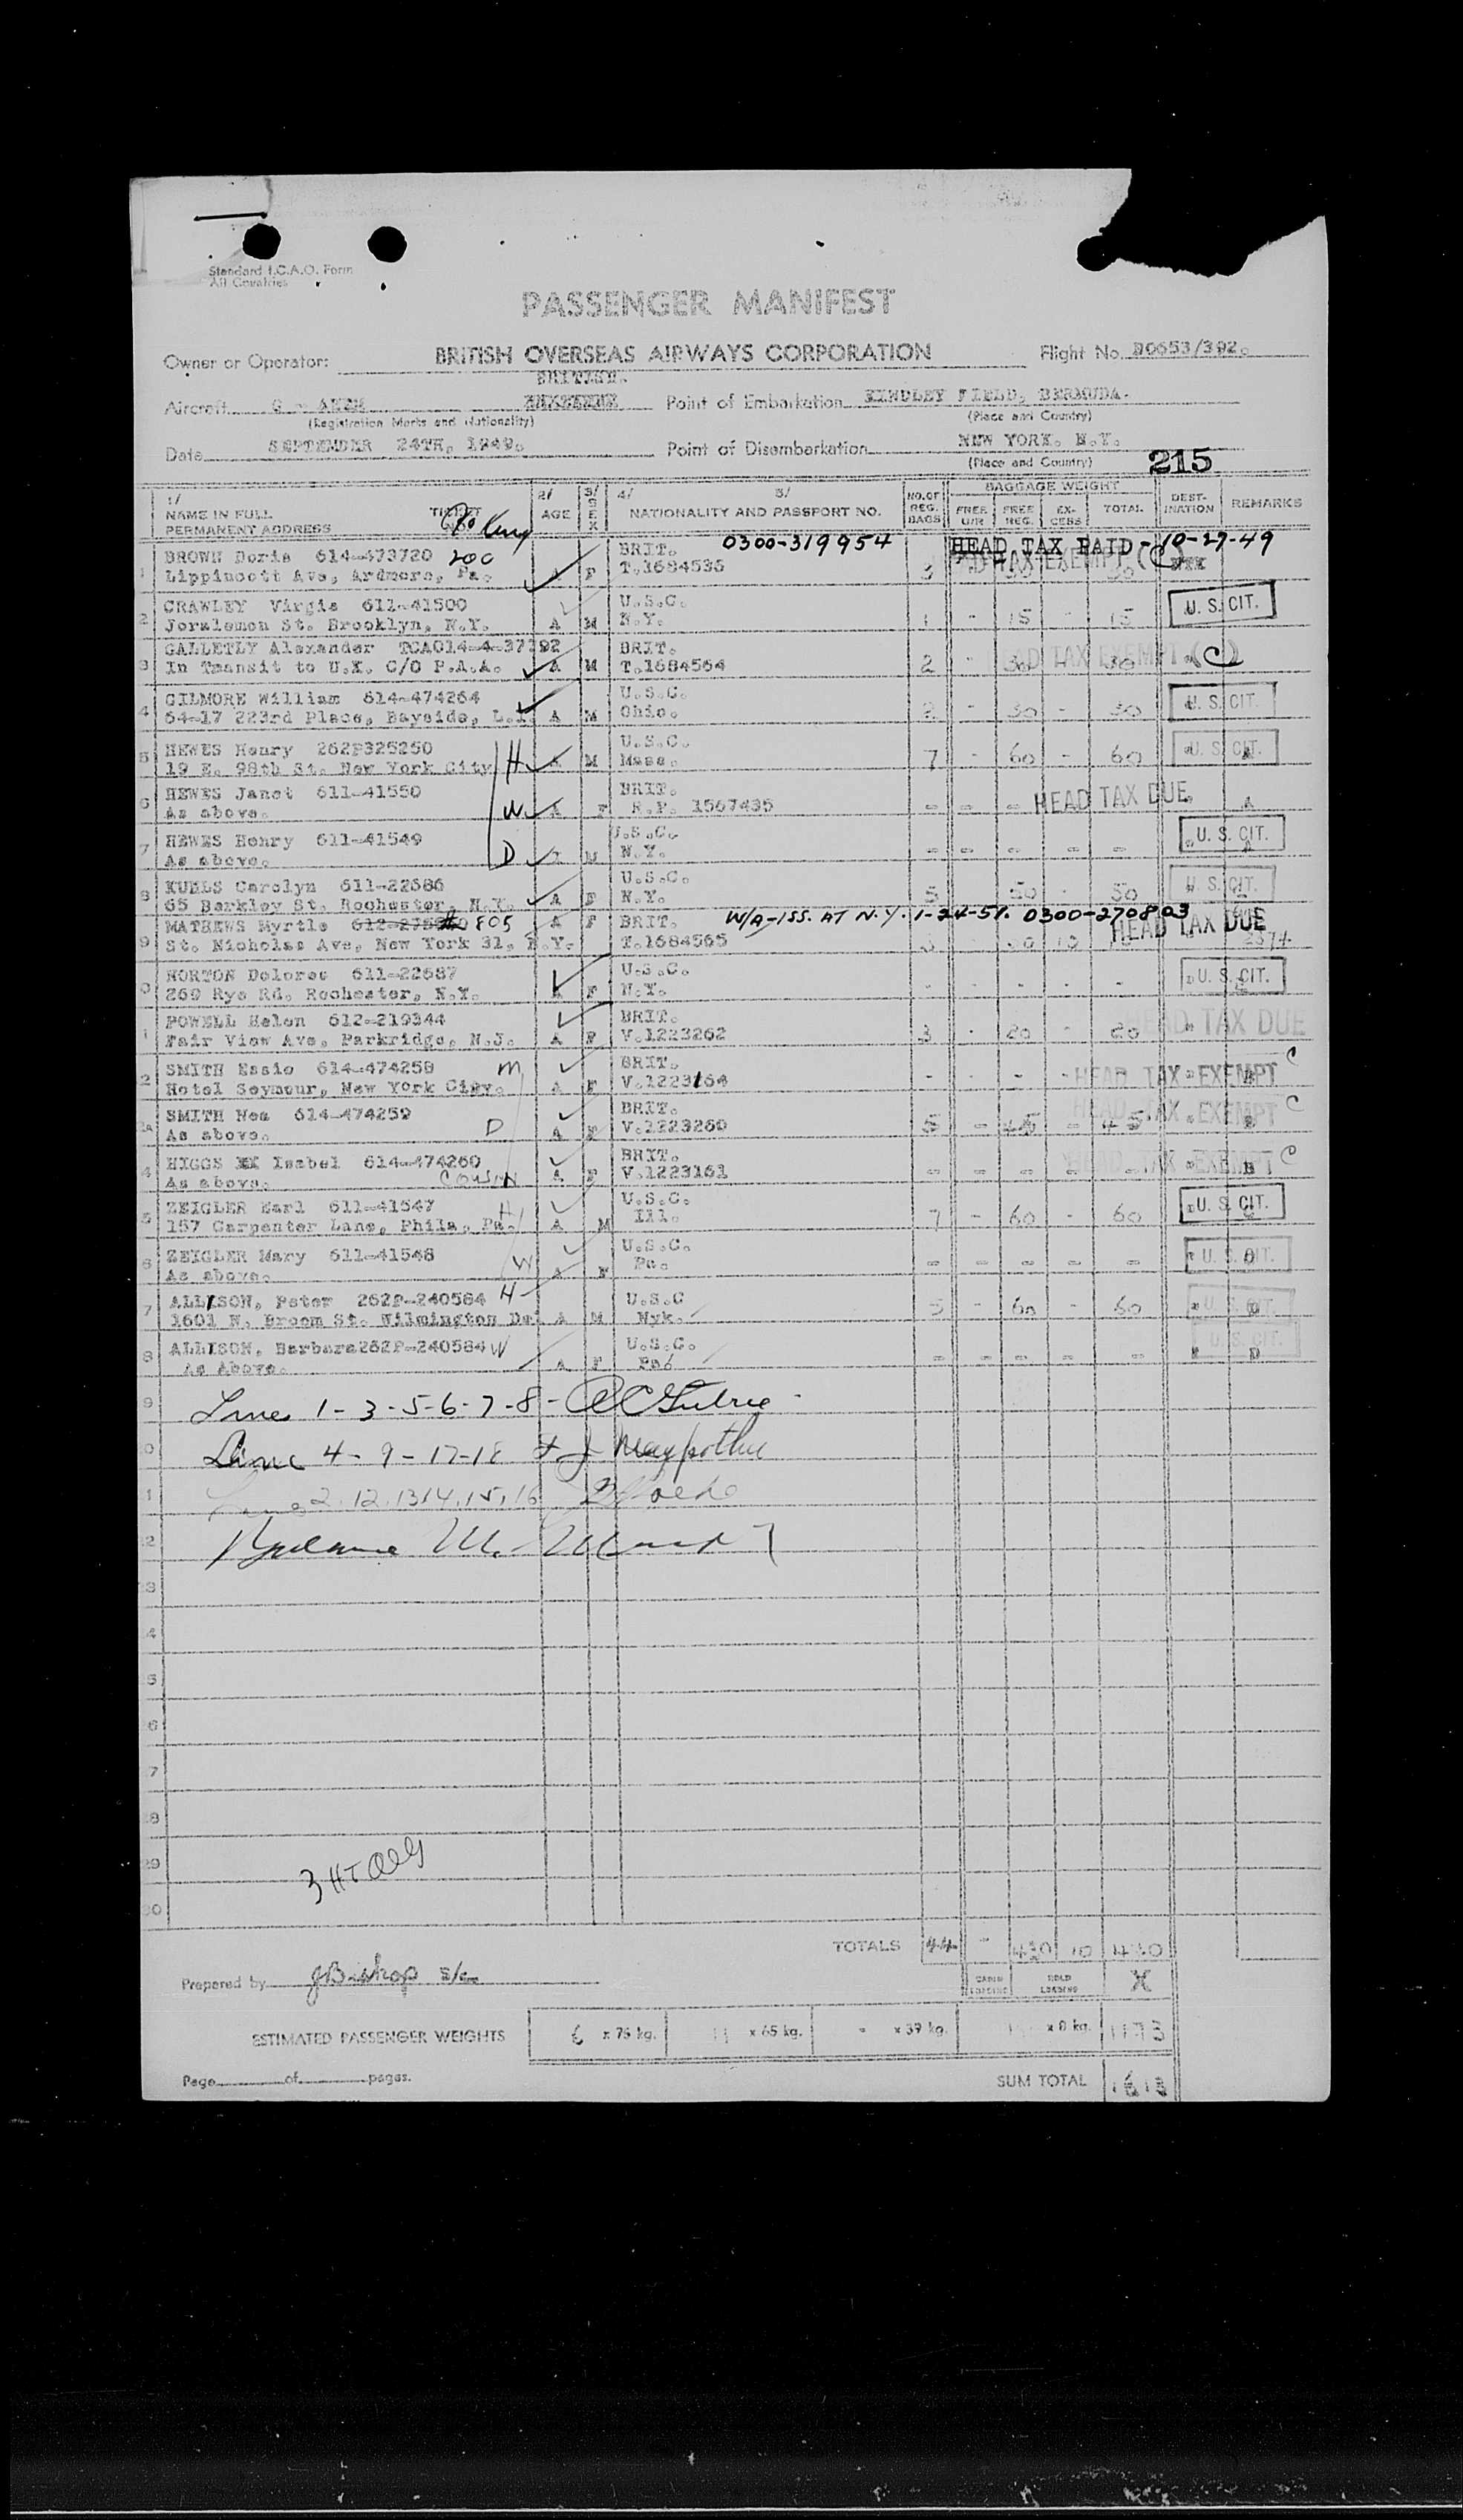 Standard I.C.A.O. Form
All Countries
PASSENGER MANIFEST
Owner or Operator: BRITISH OVERSEAS AIRWAYS CORPORATION Flight No. BO653/392.
BRITISH.
Aircraft G - Point of Embarkation KINDLEY FIELD, BERMUDA.
(Registration Marks and Nationality) (Place and Country)
Date SEPTEMBER 24TH, 1949. Point of Disembarkation NEW YORK. N.Y.
(Place and Country) 215
1/ NAME IN FULL PERMANENT ADDRESS TICKET NO. 2/ AGE 3/ SEX 4/ 5/ NATIONALITY AND PASSPORT NO. NO. OF REG. BAGS BAGGAGE WEIGHT FREE FREE REG. EXCESS TOTAL DESTINATION REMARKS
0300-319954 HEAD TAX PAID - 10-27-49
1 BROWN Doris 614-473720 200 BRIT. HEAD TAX EXEMPT (C)
Lippincott Ave, Ardmore, Pa. A F T.1684535 3 30
2 CRAWLEY Virgie 611-41500 U.S.C. U. S. CIT.
Joralemon St. Brooklyn, N.Y. A M N.Y. 1 - 15 - 15
3 GALLETLY Alexander TCA014-4-37392 BRIT. HEAD TAX EXEMPT (C)
In Transit to U.K. C/O P.A.A. A M T.1684564 2 - 30 - 30
4 GILMORE William 614-474264 U.S.C. U. S. CIT.
64-17 223rd Place, Bayside, L.I. A M Ohio. 2 - 30 - 30
5 HEWES Henry 262P325250 H U.S.C. U. S. CIT.
19 E. 98th St. New York City A M Mass. 7 - 60 - 60 A
6 HEWES Janet 611-41550 W BRIT. HEAD TAX DUE
As above. A F R.P. 1567435 - - - A
7 HEWES Henry 611-41549 D U.S.C. U. S. CIT.
As above. M N.Y. - - - - - A
8 KUHLS Carolyn 611-22686 U.S.C. U. S. CIT.
65 Barkley St. Rochester, N.Y. A F N.Y. 5 50 - 50
9 MATHEWS Myrtle 805 A F BRIT. W/A-ISS. AT N.Y. 1-24-51. 0300-270803
St. Nicholas Ave, New York 31, N.Y. T.1684565 3 10 HEAD TAX DUE
0 NORTON Dolores 611-22687 U.S.C. U. S. CIT.
269 Rye Rd. Rochester, N.Y. A F N.Y. - - - - -
1 POWELL Helen 612-219344 BRIT. HEAD TAX DUE
Fair View Ave, Parkridge, N.J. A F V.1223262 3 - 20 - 20
2 SMITH Essie 614-474258 M BRIT. HEAD TAX EXEMPT C
Hotel Seymour, New York City. A F V.1223164 - - - -
SMITH Nea 614-474259 D BRIT. HEAD TAX EXEMPT C
As above. A F V.1223260 5 - 45 - 45
4 HIGGS Isabel 614-474260 BRIT. HEAD TAX EXEMPT C
As above. Cousin A F V.1223161 - - - - - B
5 ZEIGLER Earl 611-41547 H U.S.C. U. S. CIT.
157 Carpenter Lane, Phila, Pa. A M Ill. 7 - 60 - 60
6 ZEIGLER Mary 611-41548 W U.S.C. U. S. CIT.
As above. A F Pa. - - - - -
7 ALLISON, Peter 262P-240584 H U.S.C U. S. CIT.
1601 N. Broom St. Wilmington Del A M Nyk. 5 - 60 - 60 D
8 ALLISON, Barbara 262P-240584 W U.S.C. U. S. CIT.
As Above. A F Pa. - - - - - D
9 Lines 1-3-5-6-7-8-
0 Line 4-9-17-18
1 2.12.13.14.15.16
2
3
4
5
6
7
8
29
30
3 HT
TOTALS 44 - 430 10 440
Prepared by J Bishop
CABIN LOADING HOLD LOADING X
ESTIMATED PASSENGER WEIGHTS 6 x 75 kg. 11 x 65 kg. - x 39 kg. x 8 kg. 1173
Page of pages. SUM TOTAL 1613